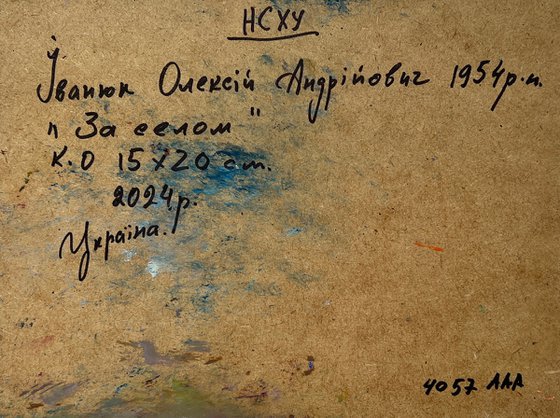 НСХУ
Іванюк Олексій Андрійович 1954р.н.
"За селом"
К.О 15х20 см.
2024р.
Україна.
4057 ААА